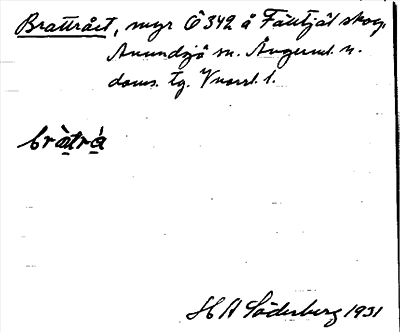 Brattrået, myr Ö 342 å Fäntjäl skog,
Anundsjö sn. Ångerml. n.
doms. tg. Vnorrl. l.
bràtrá
H A Söderberg 1931